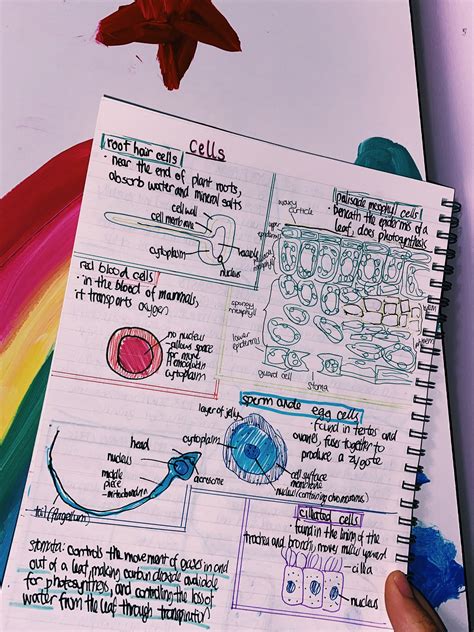 cells
root hair cells
• near the end of plant roots,
absorb water and mineral salts
cell wall
cell membrane
cytoplasm
vacuole
nucleus
palisade mesophyll cells
• beneath the epidermis of a
leaf, does photosynthesis
waxy
epidermis
spongy
mesophyll
lower
epidermis
guard cell
stoma
red blood cells
• in the blood of mammals,
it transports oxygen
no nucleus
- allows space
for more
cytoplasm
sperm and egg cells
• found in testes and
ovaries, fuses together to
produce a zygote
layer of jelly
cytoplasm
cell surface
membrane
nucleus (containing chromosomes)
head
nucleus
middle
piece
acrosome
tail (flagellum)
ciliated cells
• found in the lining of the
trachea and bronchi, moves mucus upward
cilia
nucleus
stomata: controls the movement of gases in and
out of a leaf, making carbon dioxide available
for photosynthesis, and controlling the loss of
water from the leaf through transpiration